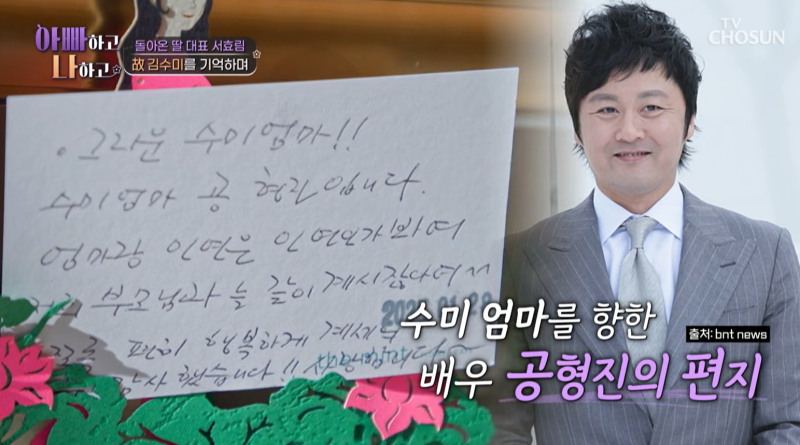 아빠하고
나하고
돌아온 딸 대표 서효림
故 김수미를 기억하며
TV
CHOSUN
그리운 수미엄마!!
수미엄마 공 형진입니다.
엄마랑 인연은 인연인가봐여
부모님과 늘 같이 계시잖아여
편히 행복하게 계세
했습니다!!
수미 엄마를 향한
출처: bnt news
배우 공형진의 편지